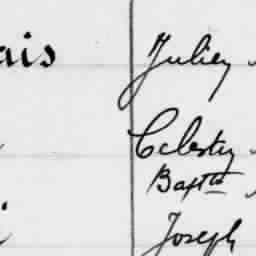 ais Juliey
Celesty
Baptte
Joseph